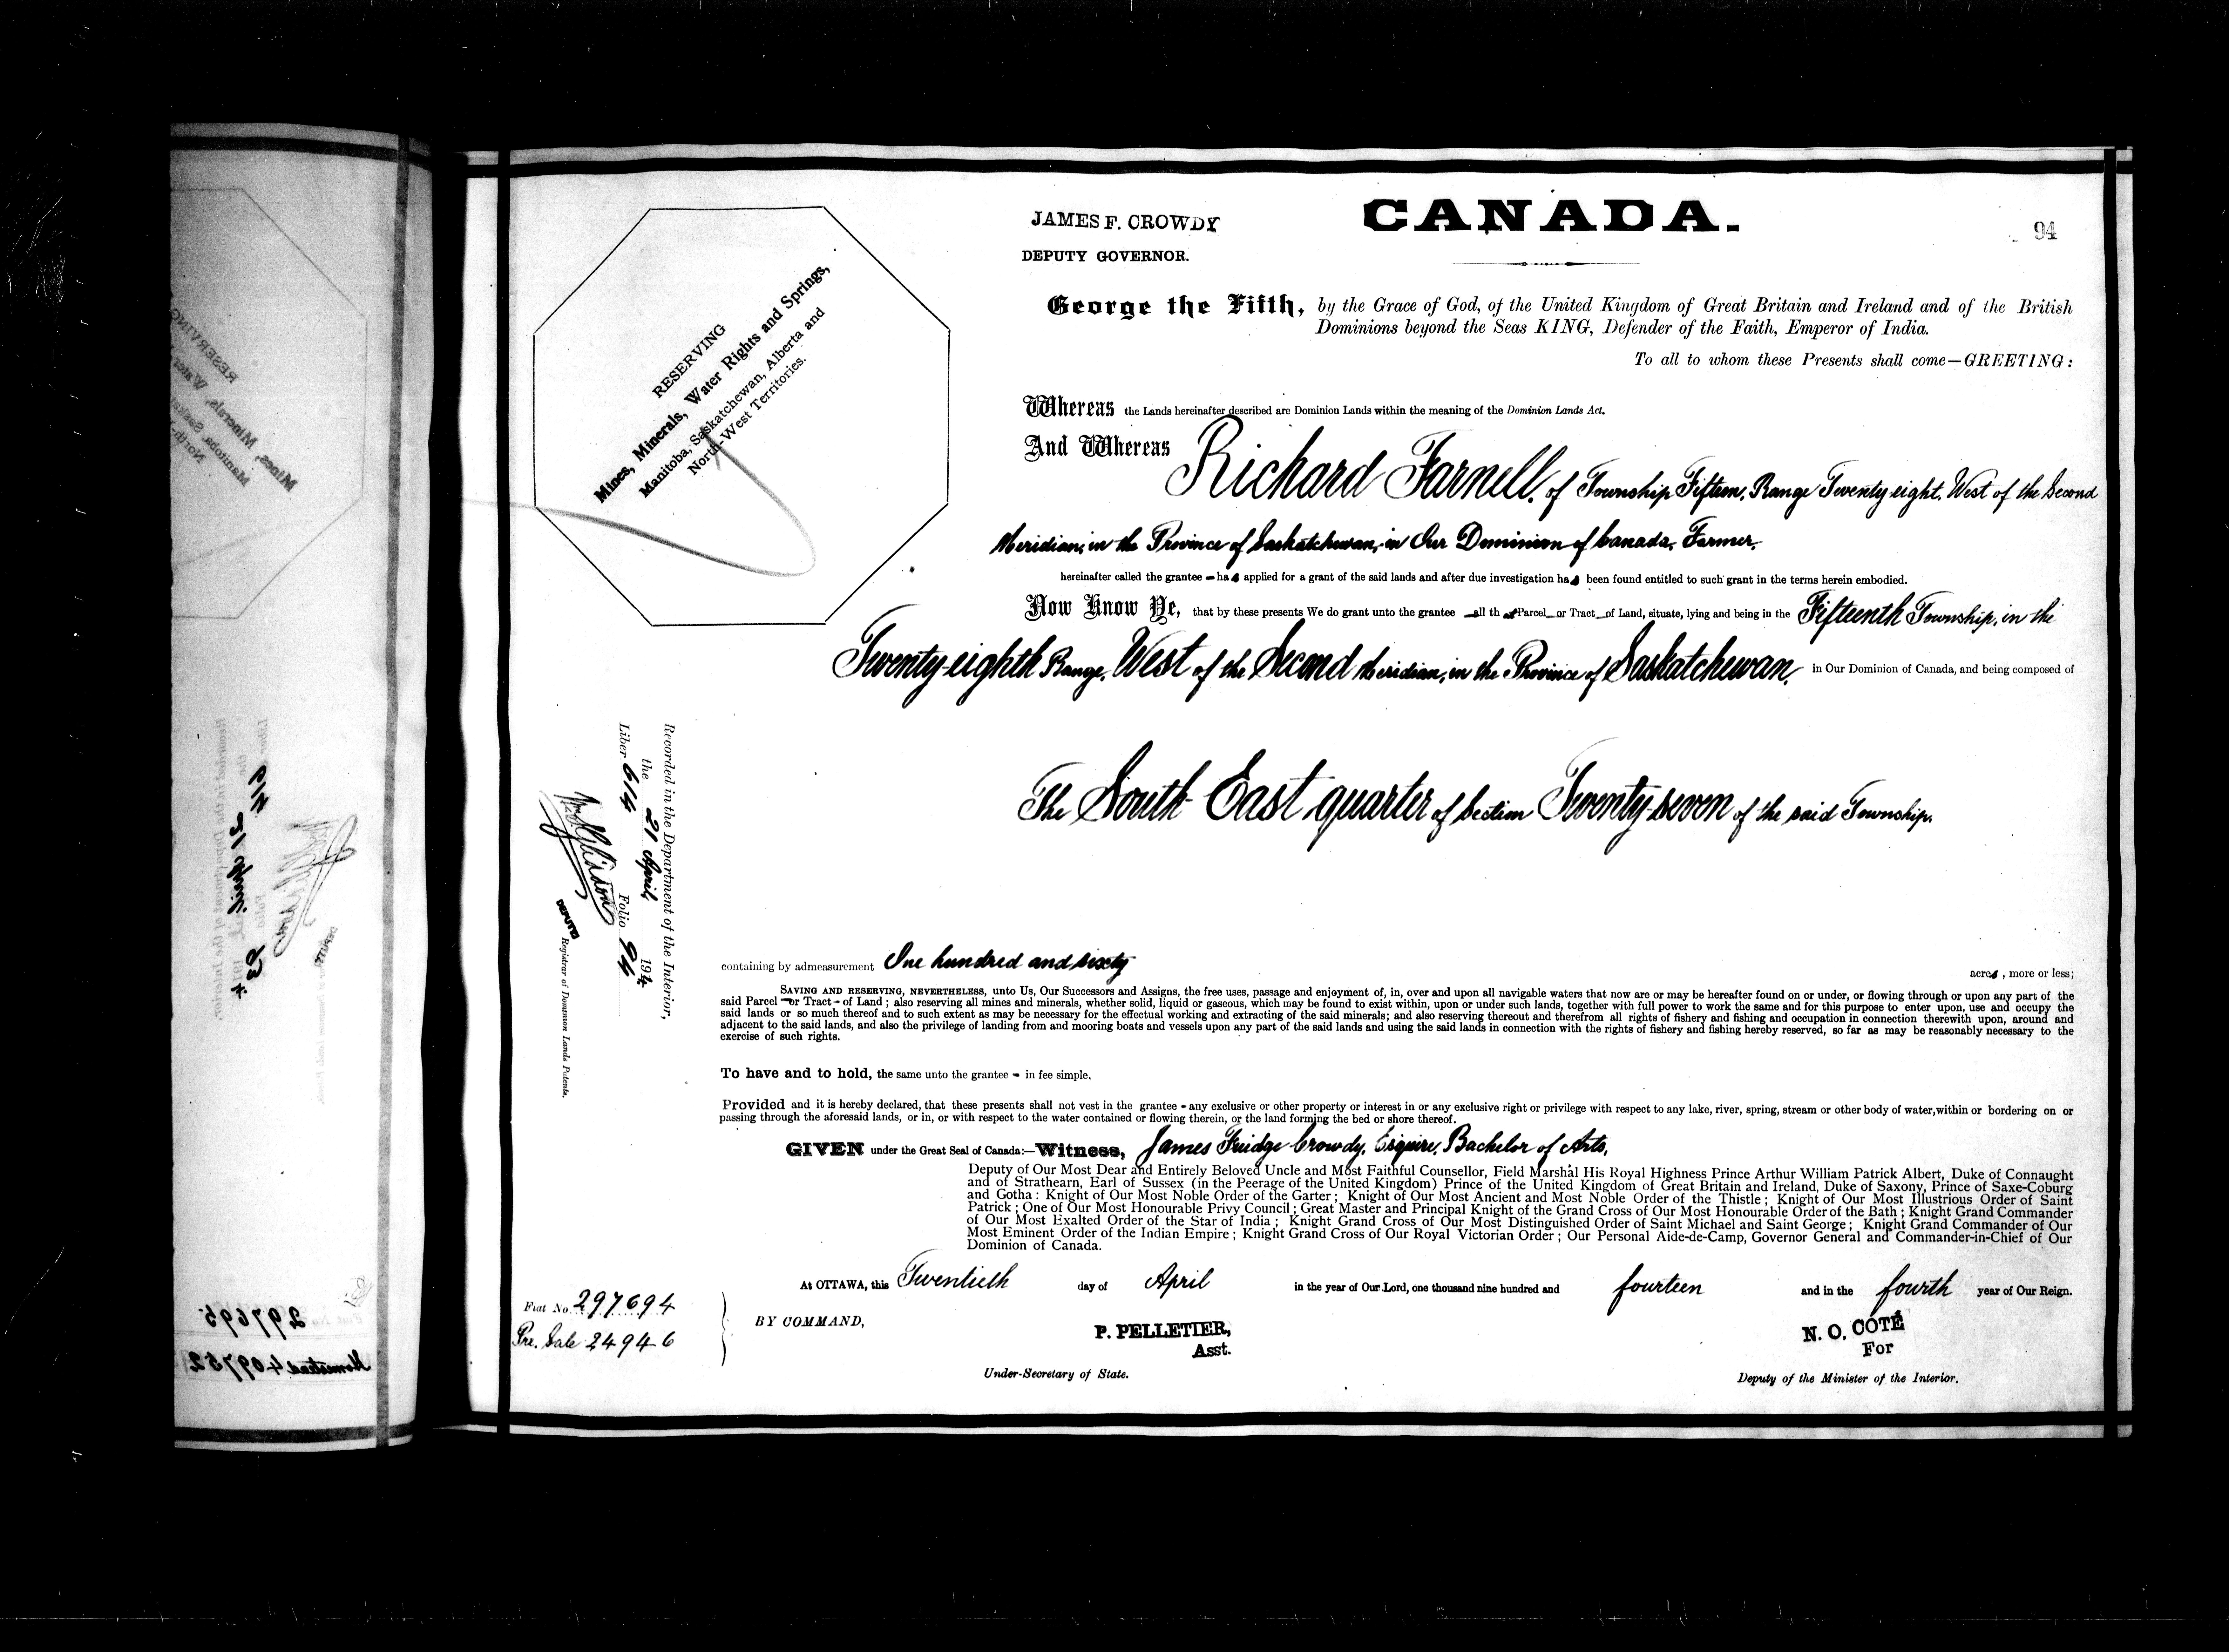 JAMES F. CROWDY
DEPUTY GOVERNOR.
CANADA.
94
RESERVING
Mines, Minerals, Water Rights and Springs,
Manitoba, Saskatchewan, Alberta and
North-West Territories.
George the Fifth, by the Grace of God, of the United Kingdom of Great Britain and Ireland and of the British
Dominions beyond the Seas KING, Defender of the Faith, Emperor of India.
To all to whom these Presents shall come—GREETING:
Whereas the Lands hereinafter described are Dominion Lands within the meaning of the Dominion Lands Act.
And Whereas Richard Farnell, of Township Fifteen, Range Twenty eight, West of the Second
Meridian, in the Province of Saskatchewan, in Our Dominion of Canada, Farmer,
hereinafter called the grantee - has applied for a grant of the said lands and after due investigation has been found entitled to such grant in the terms herein embodied.
Now Know Ye, that by these presents We do grant unto the grantee all that Parcel or Tract of Land, situate, lying and being in the Fifteenth Township, in the
Twenty-eighth Range, West of the Second Meridian, in the Province of Saskatchewan, in Our Dominion of Canada, and being composed of
The South East quarter of Section Twenty-seven of the said Township.
Recorded in the Department of the Interior,
the 21 April, 1914
Liber 614 Folio 94
DEPUTY Registrar of Dominion Lands Patents.
containing by admeasurement One hundred and sixty acres, more or less;
SAVING AND RESERVING, NEVERTHELESS, unto Us, Our Successors and Assigns, the free uses, passage and enjoyment of, in, over and upon all navigable waters that now are or may be hereafter found on or under, or flowing through or upon any part of the
said Parcel - or Tract - of Land; also reserving all mines and minerals, whether solid, liquid or gaseous, which may be found to exist within, upon or under such lands, together with full power to work the same and for this purpose to enter upon, use and occupy the
said lands or so much thereof and to such extent as may be necessary for the effectual working and extracting of the said minerals; and also reserving thereout and therefrom all rights of fishery and fishing and occupation in connection therewith upon, around and
adjacent to the said lands, and also the privilege of landing from and mooring boats and vessels upon any part of the said lands and using the said lands in connection with the rights of fishery and fishing hereby reserved, so far as may be reasonably necessary to the
exercise of such rights.
To have and to hold, the same unto the grantee - in fee simple.
Provided and it is hereby declared, that these presents shall not vest in the grantee - any exclusive or other property or interest in or any exclusive right or privilege with respect to any lake, river, spring, stream or other body of water, within or bordering on or
passing through the aforesaid lands, or in, or with respect to the water contained or flowing therein, or the land forming the bed or shore thereof.
GIVEN under the Great Seal of Canada:—Witness, James Fuidge Crowdy, Esquire, Bachelor of Arts,
Deputy of Our Most Dear and Entirely Beloved Uncle and Most Faithful Counsellor, Field Marshal His Royal Highness Prince Arthur William Patrick Albert, Duke of Connaught
and of Strathearn, Earl of Sussex (in the Peerage of the United Kingdom) Prince of the United Kingdom of Great Britain and Ireland, Duke of Saxony, Prince of Saxe-Coburg
and Gotha: Knight of Our Most Noble Order of the Garter; Knight of Our Most Ancient and Most Noble Order of the Thistle; Knight of Our Most Illustrious Order of Saint
Patrick; One of Our Most Honourable Privy Council; Great Master and Principal Knight of the Grand Cross of Our Most Honourable Order of the Bath; Knight Grand Commander
of Our Most Exalted Order of the Star of India; Knight Grand Cross of Our Most Distinguished Order of Saint Michael and Saint George; Knight Grand Commander of Our
Most Eminent Order of the Indian Empire; Knight Grand Cross of Our Royal Victorian Order; Our Personal Aide-de-Camp, Governor General and Commander-in-Chief of Our
Dominion of Canada.
At OTTAWA, this Twentieth day of April in the year of Our Lord, one thousand nine hundred and fourteen and in the fourth year of Our Reign.
Fiat No. 297694
Pre. Sale 24946
BY COMMAND,
P. PELLETIER,
Asst.
Under-Secretary of State.
N. O. COTÉ
For
Deputy of the Minister of the Interior.
297695
Homestead 409752